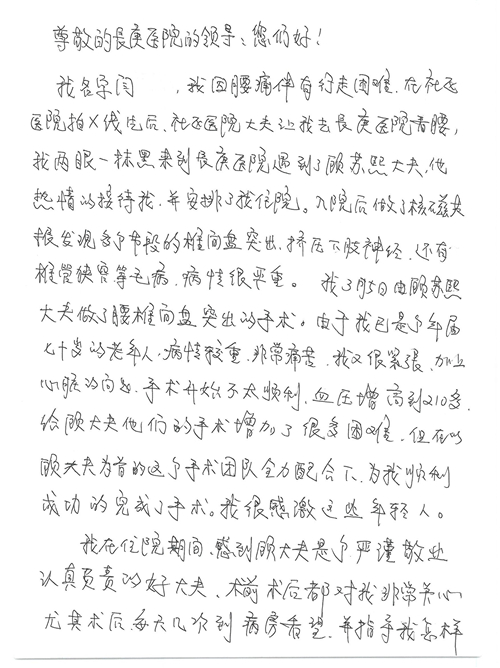 尊敬的長庚医院的领导、您们好!
我名字闫　　，我因腰痛伴有行走困难.在社区
医院拍X线片后、社区医院大夫让我去長庚医院看腰，
我两眼一抹黑来到長庚医院遇到了顾苏熙大夫,他
热情的接待我.并安排了我住院。入院后做了核磁共
振发现多个节段的椎间盘突出.挤压下肢神经.还有
椎管狭窄等毛病.病情很严重。我3月5日由顾苏熙
大夫做了腰椎间盘突出的手术。由于我已是个年届
七十岁的老年人,病情较重.非常痛苦、我又很紧张、加上
心脏的问题、手术开始不太顺利.血压增高到210多.
给顾大夫他们的手术增加了很多困难.但在以
顾大夫为首的这个手术团队全力配合下、为我顺利
成功的完成了手术。我很感激这些年轻人。
我在住院期间、感到顾大夫是个严谨敬业
认真负责的好大夫、术前术后都对我非常关心
尤其术后.每天几次到病房看望.并指导我怎样